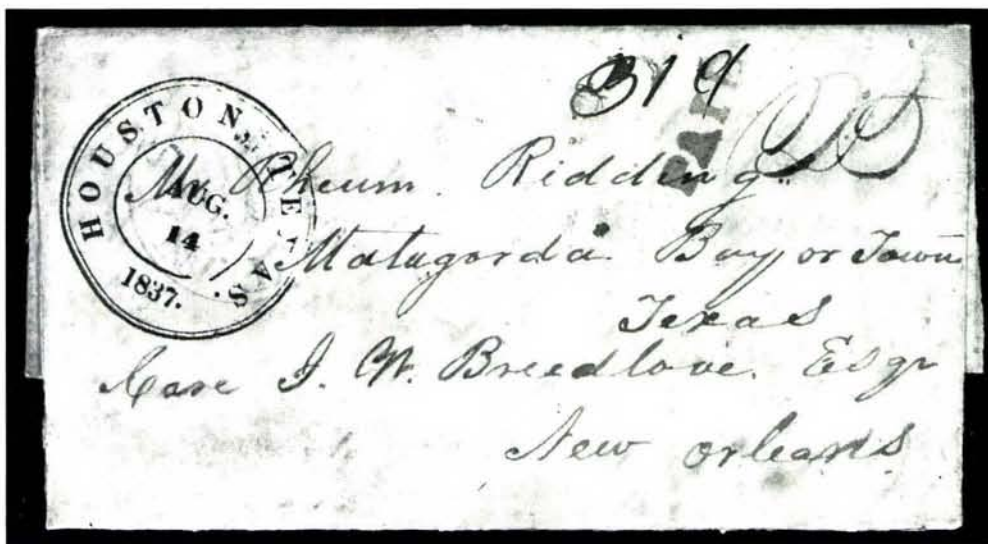 319
PAID
25
HOUSTON, TEXAS.
AUG.
14
1837.
Mr. Rheum. Ridding
Matagorda Bay or Town
Texas
Care J. W. Breedlove. Esqr
New Orleans